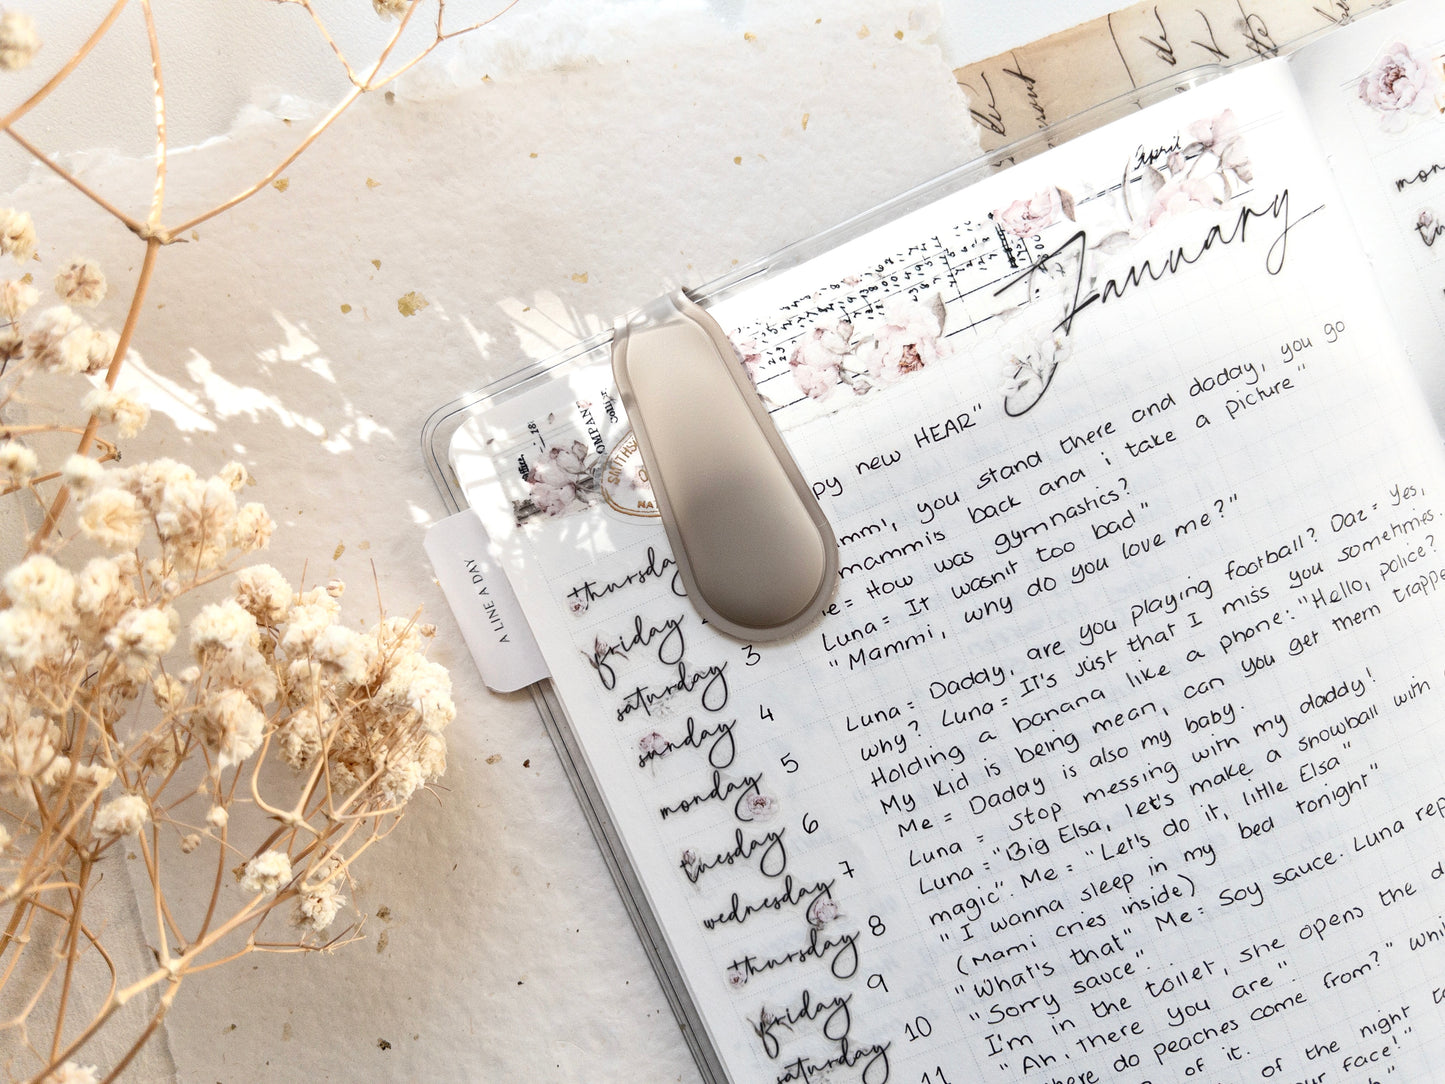 April
January
OMPAN
A LINE A DAY
py new HEAR"
mmi, you stand there and daddy, you go
mammis back and i take a picture"
e = How was gymnastics?
Luna = It wasn't too bad"
"Mammi, why do you love me?"
Luna = Daddy, are you playing football? Daz = Yes,
why? Luna = It's just that I miss you sometimes.
Holding a banana like a phone: "Hello, police?
My kid is being mean, can you get them trappe
Me = Daddy is also my baby.
Luna = Stop messing with my daddy!
Luna = "Big Elsa, let's make a snowball with
magic". Me = "Let's do it, little Elsa"
"I wanna sleep in my bed tonight"
(Mami cries inside)
"What's that" Me = Soy sauce. Luna rep
"Sorry sauce".
I'm in the toilet, she opens the d
"Ah, there you are".
here do peaches come from?" whil
of it.
of the night
ur face!"
thursday
friday
saturday 3
sunday 4
monday 5
tuesday 6
wednesday 7
thursday 8
friday 9
saturday 10
11
mon
tu